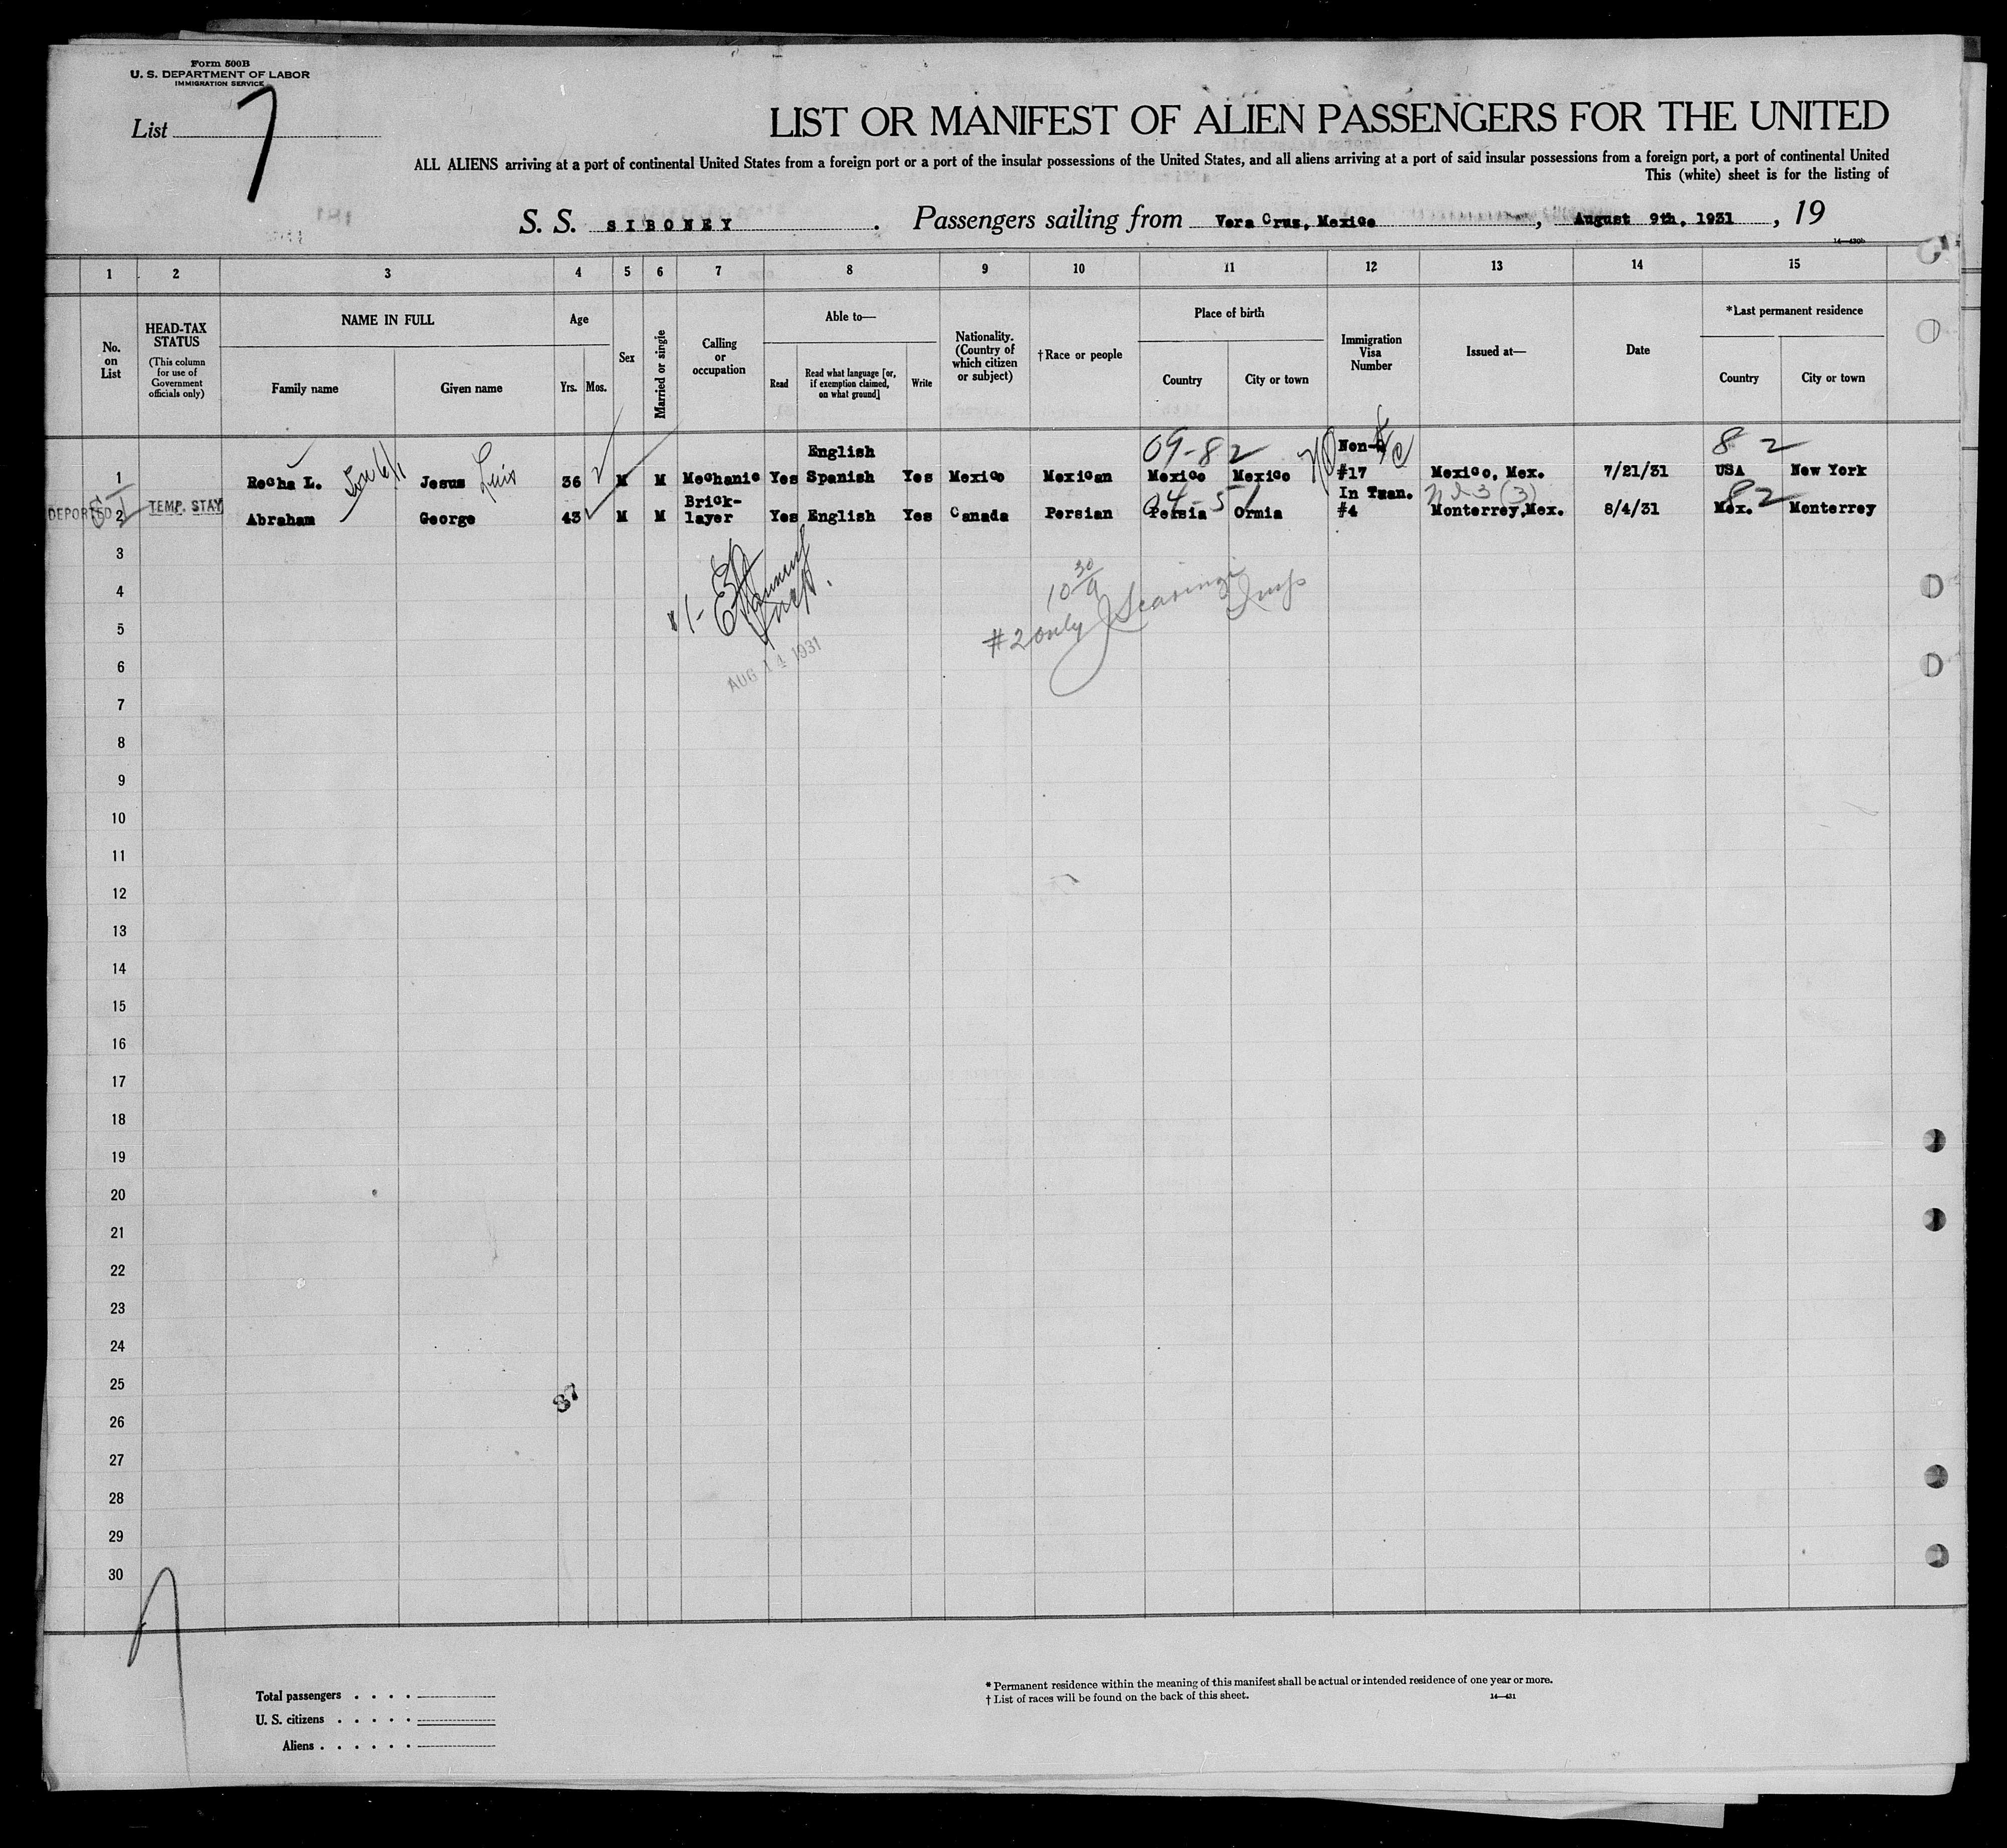 Form 500B
U. S. DEPARTMENT OF LABOR
IMMIGRATION SERVICE
List 7
LIST OR MANIFEST OF ALIEN PASSENGERS FOR THE UNITED
ALL ALIENS arriving at a port of continental United States from a foreign port or a port of the insular possessions of the United States, and all aliens arriving at a port of said insular possessions from a foreign port, a port of continental United
This (white) sheet is for the listing of
S. S. SIBONEY. Passengers sailing from Vera Cruz, Mexico, August 9th, 1931, 19
14—430b
1 2 3 4 5 6 7 8 9 10 11 12 13 14 15
No. on List
HEAD-TAX STATUS
(This column for use of Government officials only)
NAME IN FULL
Family name Given name
Age
Yrs. Mos.
Sex
Married or single
Calling or occupation
Able to—
Read
Read what language [or, if exemption claimed, on what ground]
Write
Nationality. (Country of which citizen or subject)
†Race or people
Place of birth
Country City or town
Immigration Visa Number
Issued at—
Date
*Last permanent residence
Country City or town
English 09-82 Non- 82
1 Rocha L. Jesus Luis 36 M M Mechanic Yes Spanish Yes Mexico Mexican Mexico Mexico #17 Mexico, Mex. 7/21/31 USA New York
Brick- In Tran. (3) 82
DEPORTED 2 TEMP. STAY Abraham George 43 M M layer Yes English Yes Canada Persian Persia Ormia #4 Monterrey, Mex. 8/4/31 Mex. Monterrey
3
4
10 30/a
5
#2 only Insp
6
AUG 14 1931
7
8
9
10
11
12
13
14
15
16
17
18
19
20
21
22
23
24
25
37
26
27
28
29
30
Total passengers
U. S. citizens
Aliens
* Permanent residence within the meaning of this manifest shall be actual or intended residence of one year or more.
† List of races will be found on the back of this sheet. 14—431